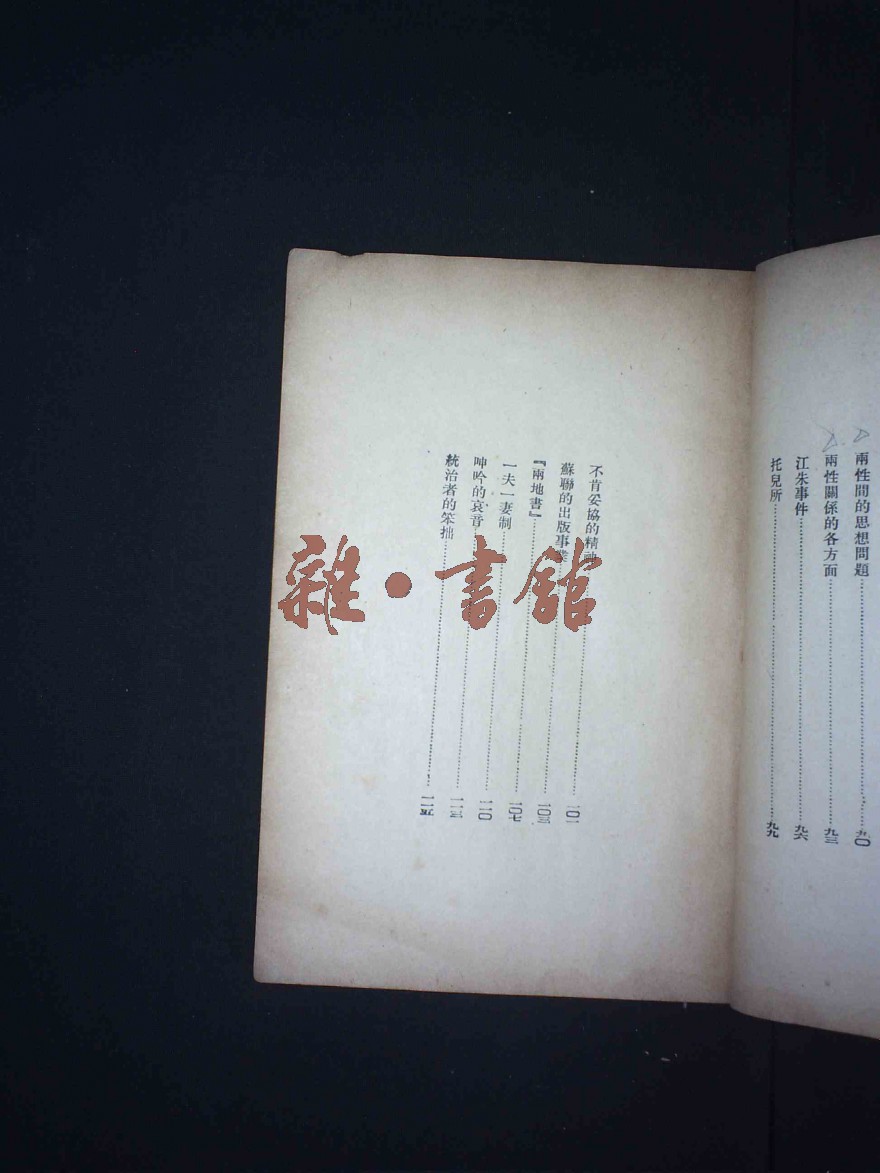 兩性間的思想問題……九〇
兩性關係的各方面……九三
江朱事件……九六
托兒所……九九
不肯妥協的精神……一〇一
蘇聯的出版事業……一〇三
『兩地書』……一〇七
一夫一妻制……一一〇
呻吟的哀音……一一三
統治者的笨拙……一一五
雜·書館